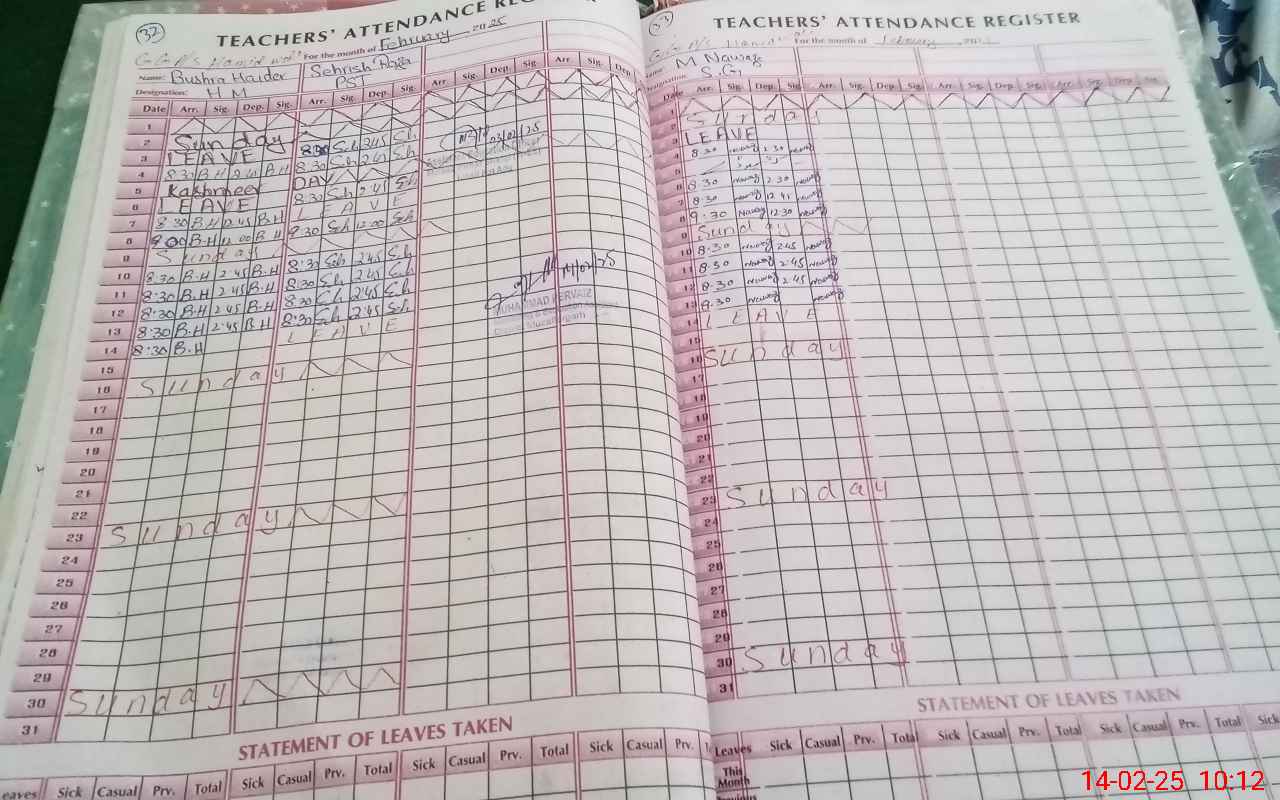 32
TEACHERS' ATTENDANCE
For the month of February 2025
Name: Bushra Haider Sehrish
Designation: H M PST
Date Arr. Sig. Dep. Sig. Arr. Sig. Dep. Sig. Arr. Sig. Dep. Sig. Arr. Sig. Dep.
1
2 Sunday
3 LEAVE 8:30 Sh 2:45 Sh 03/02/25
4 8:30 B.H B.H 8:30 Sh 2:45 Sh
5 Kashmeer DAY
6 LEAVE 8:30 Sh 2:45 Sh
7 8:30 B.H 2:45 B.H LEAVE
8 9:00 B.H 12:00 B.H 9:30 Sh 12:00 Sh
9 Sunday
10 8:30 B.H 2:45 B.H 8:30 Sh 2:45 Sh
11 8:30 B.H 2:45 B.H 8:30 Sh 2:45 Sh
12 8:30 B.H 2:45 B.H 8:30 Sh 2:45 Sh
13 8:30 B.H 2:45 B.H 8:30 Sh 2:45 Sh
14 8:30 B.H LEAVE
14/02/25
MUHAMMAD PERVAIZ
15
16 Sunday
17
18
19
20
21
22
23 Sunday
24
25
26
27
28
29
30 Sunday
31
STATEMENT OF LEAVES TAKEN
Leaves Sick Casual Prv. Total Sick Casual Prv. Total Sick Casual Prv. Total Sick Casual Prv.
33
TEACHERS' ATTENDANCE REGISTER
For the month of February
M Nawaz
Designation
Date Arr. Sig. Dep. Sig. Arr. Sig. Dep. Sig. Arr. Sig. Dep. Sig. Arr. Sig. Dep. Sig.
1
2 Sunday
3 LEAVE
4 8:30 nawaz 2:30 nawaz
5
6 8:30 nawaz 2:30 nawaz
7 8:30 nawaz nawaz
8 9:30 Nawaz 12:30 nawaz
9 Sunday
10 8:30 nawaz 2:45 nawaz
11 8:30 nawaz 2:45 nawaz
12 8:30 nawaz 2:45 nawaz
13 nawaz nawaz
14 LEAVE
15
16 Sunday
17
18
19
20
21
22
23 Sunday
24
25
26
27
28
29
30 Sunday
31
STATEMENT OF LEAVES TAKEN
Leaves Sick Casual Prv. Total Sick Casual Prv. Total Sick Casual Prv. Total Sick
This
Month
14-02-25 10:12